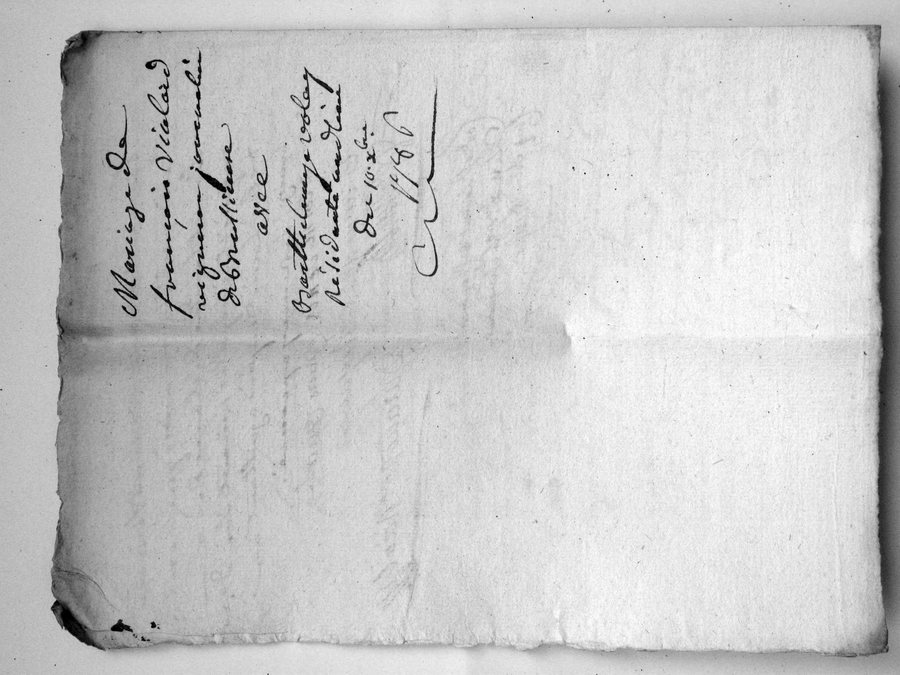 Mariage de
françois Vialard
vigneron journalier
de
avec
Barthelemye Volay
résidente audit lieu
du 10 xbre
1786